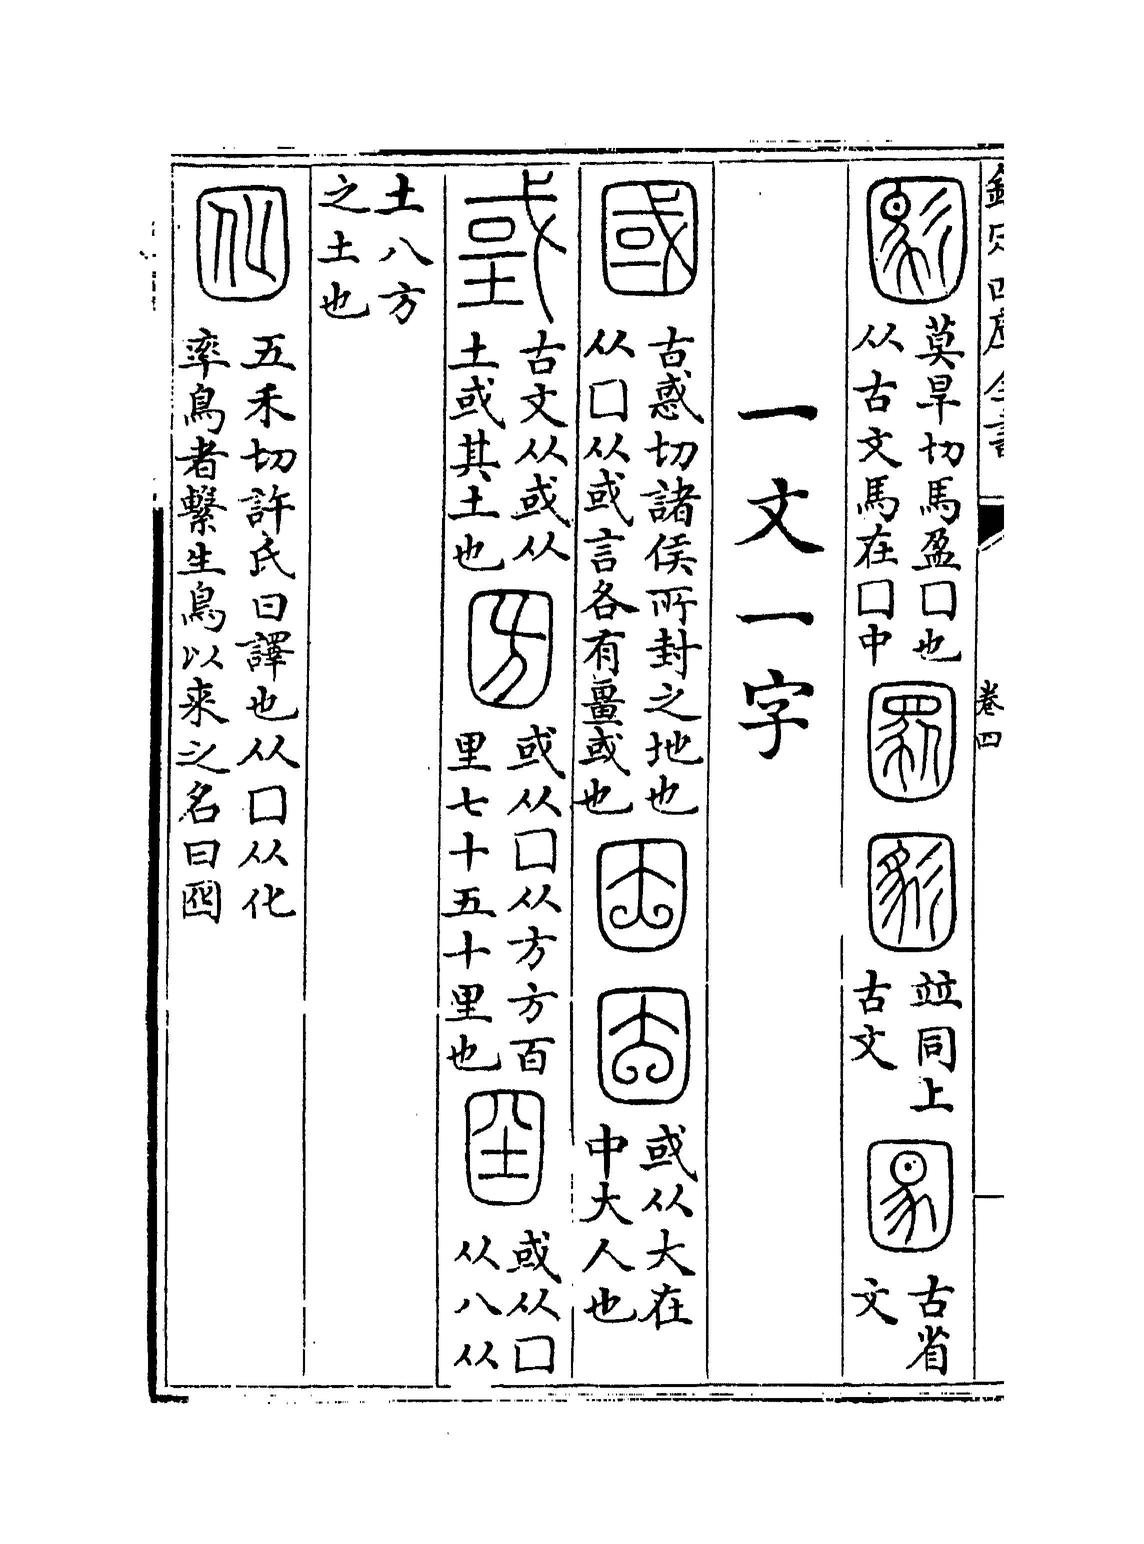 欽定四庫全書
卷四
莫旱切馬盈囗也
从古文馬在囗中
竝同上
古文
古省
文
一文一字
國
古惑切諸侯所封之地也
从囗从或言各有畺或也
或从大在
中大人也
古文从或从
土或其土也
或从囗从方方百
里七十五十里也
或从囗
从八从
土八方
之土也
五禾切許氏曰譯也从囗从化
率鳥者繫生鳥以来之名曰囮